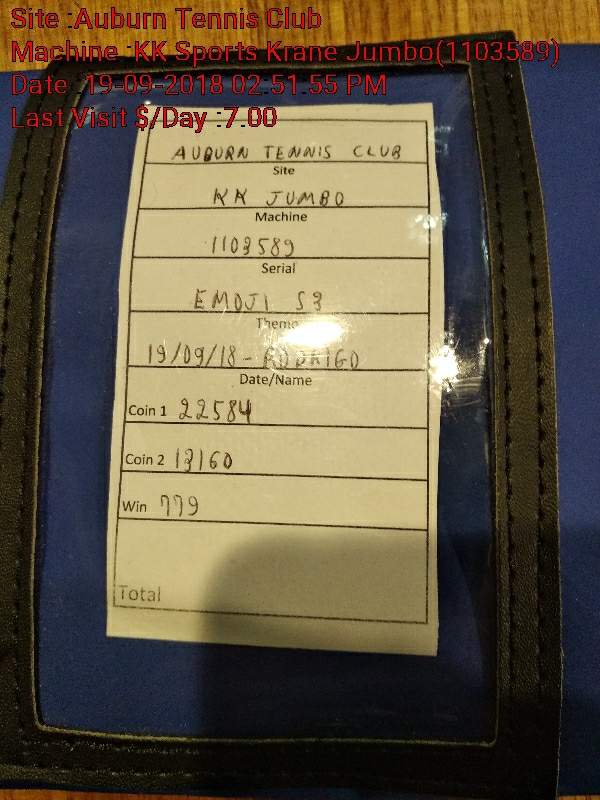 Site :Auburn Tennis Club
Machine :KK Sports Krane Jumbo(1103589)
Date :19-09-2018 02:51:55 PM
Last Visit $/Day :7.00
AUBURN TENNIS CLUB
Site
KK JUMBO
Machine
1103589
Serial
EMOJI S3
Theme
19/09/18 - RODRIGO
Date/Name
Coin 1 22584
Coin 2 13160
Win 779
Total